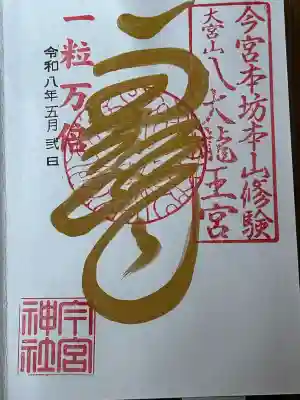 今宮本坊本山修験
大宮山
八大龍王宮
一粒万倍
令和八年五月弐日
今宮
神社